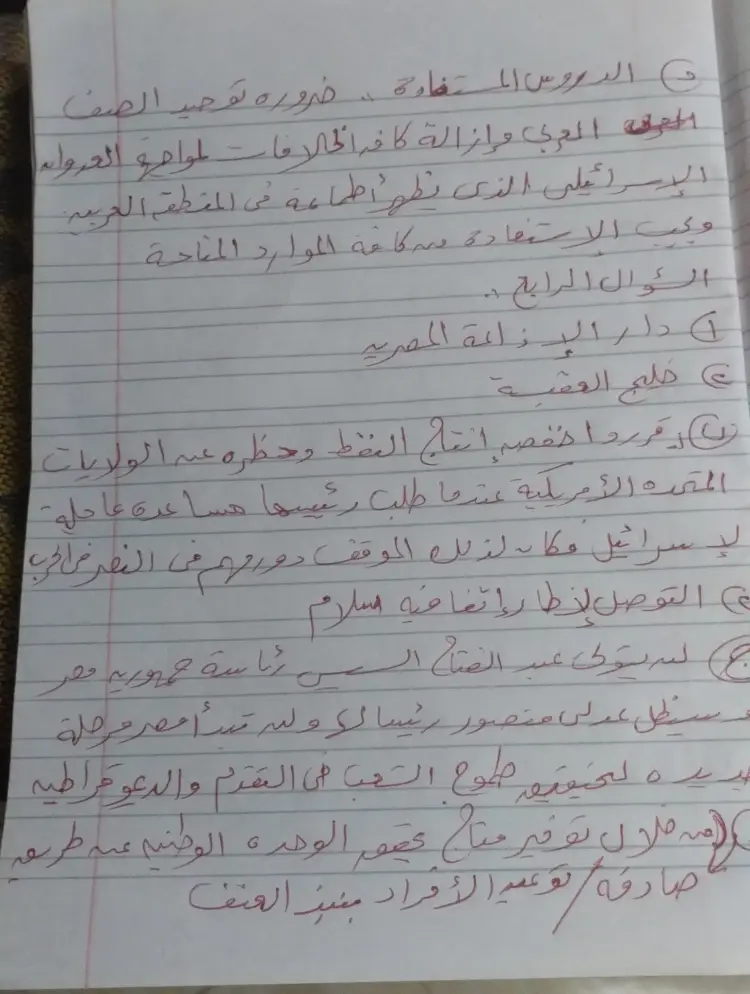 د) الدروس المستفادة .. ضروره توحيد الصف
العربى وإزالة كافه الخلافات لمواجهة العدوان
الإسرائيلى الذى تظهر أطماعة فى المنطقه العربيه
ويجب الإستفادة من كافة الموارد المتاحة
السؤال الرابع ..
أ) دار الإذاعة المصريه
خليج العقبة
ب) قرروا خفض إنتاج النفط وحظره عن الولايات
المتحده الأمريكية عندما طلب رئيسها مساعدة عاجلة
لإسرائيل فكان لذلك الموقف دور مهم فى النصر فى الحرب
التوصل لإطار إتفاقيه سلام
ج) لن يتولى عبد الفتاح السيسى رئاسة جمهوريه مصر
وسيظل عدلى منصور رئيسا لها ولن تبدأ مصر مرحلة
جديده لتحقيق طموح الشعب فى التقدم والديموقراطيه
من خلال توفير مناخ يحقق الوحده الوطنيه عن طريق
صادقه / توعيه الأفراد بنبذ العنف